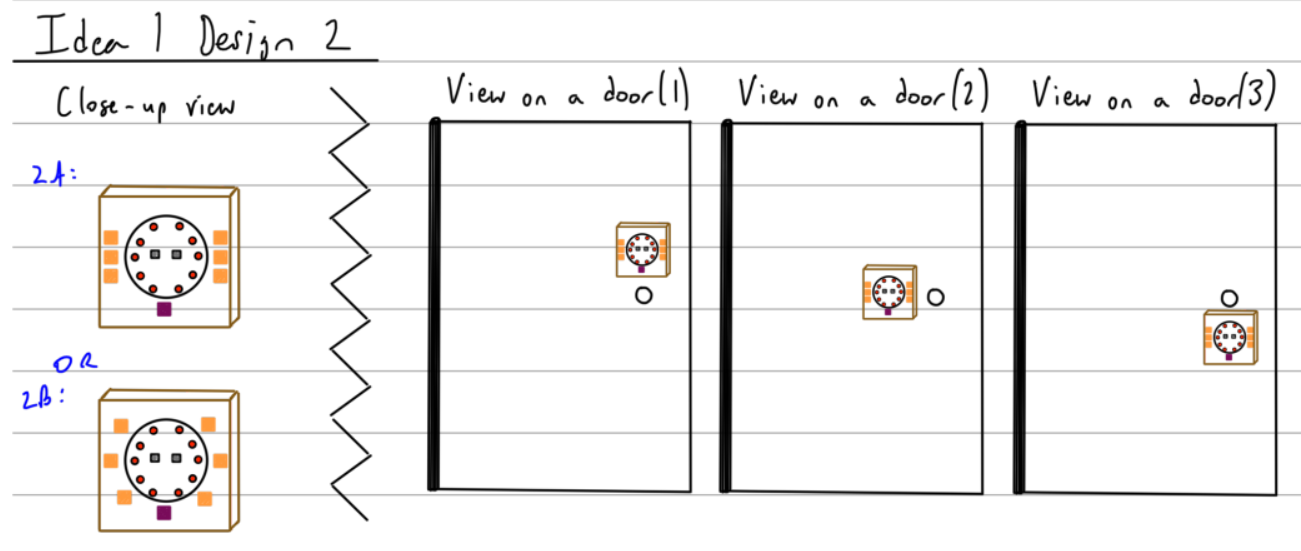 Idea 1 Design 2
Close-up view
View on a door(1)
View on a door(2)
View on a door(3)
2A:
OR
2B: